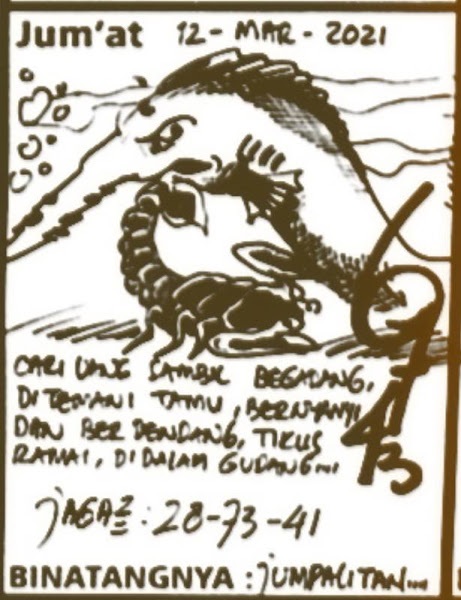 Jum'at 12 - MAR - 2021
CARI UANG SAMBIL BEGADANG,
DITEMANI TAMU, BERNYANYI
DAN BER DENDANG, TIKUS
RAMAI, DIDALAM GUDANG...
jAGA2 : 28-73-41
BINATANGNYA : jUMPALITAN...